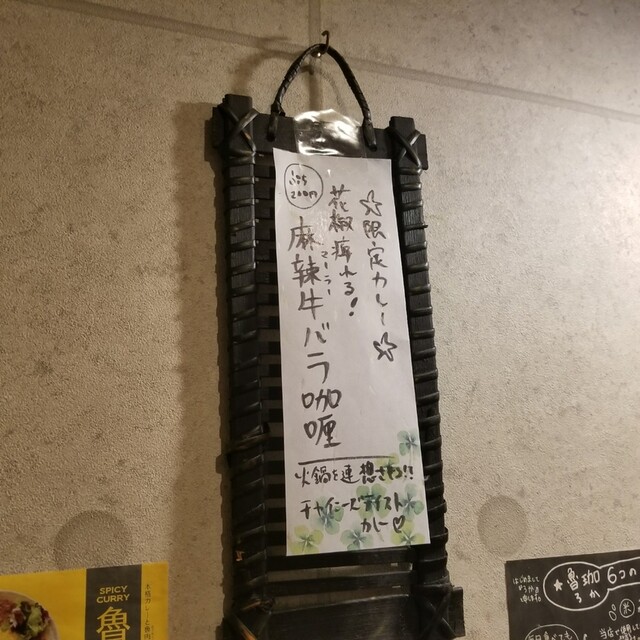 ☆限定カレー☆
花椒痺れる!
麻辣牛バラ咖喱
マーラー
ぷち
火鍋を連想させる!!
チャイニーズテイスト
カレー♡
SPICY
CURRY
魯
★魯珈6つの
ろか
はじめまして